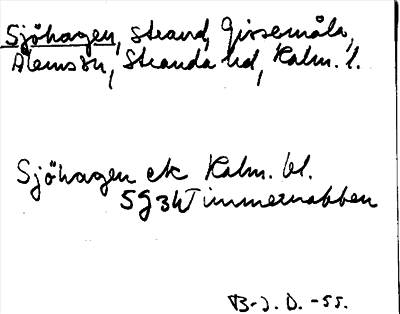 Sjöhagen, strand, Gissemåla,
Ålems sn, Stranda hd, Kalm. l.
Sjöhagen ek Kalm. bl.
5G3h Timmernabben
B-J. D. -55.